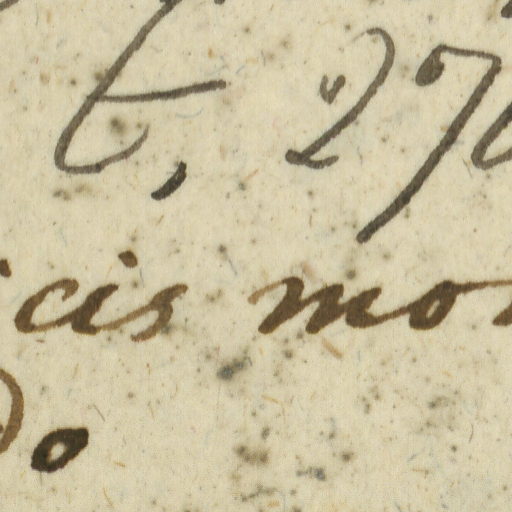 t, 27
cis mo
do